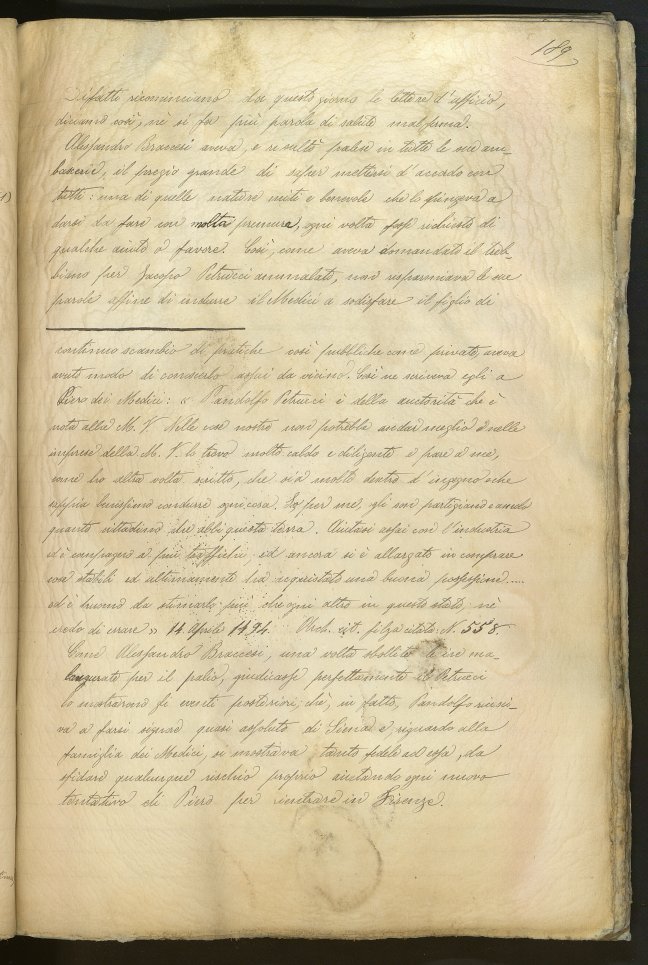 189
Difatti ricominciano da questo giorno le lettere d'ufficio,
diciamo così, nè si fa più parola di salute malferma.
Alessandro Braccesi aveva, e risultò palese in tutte le sue am-
bascerie, il pregio grande di saper mettersi d'accordo con
tutti: una di quelle nature miti e benevole che lo spingeva a
darsi da fare con molta premura, ogni volta fosse richiesto di
qualche aiuto o favore. Così, come aveva domandato il treb-
biano per Jacopo Petrucci ammalato, non risparmiava le sue
parole affine di indurre il Medici a sodisfare il figlio di
continuo scambio di pratiche così pubbliche come private, aveva
avuto modo di conoscerlo assai da vicino. Così ne scriveva egli a
Piero dei Medici: « Pandolfo Petrucci è della auctorità che è
nota alla M. V. Nelle cose nostre non potrebbe andar meglio e nelle
imprese della M. V. lo trovo molto caldo e diligente e pare a me,
come ho altra volta scritto, che sia molto dentro d'ingegno e che
sappia benissimo condurre ogni cosa. Io per me, gli son partigiano e amollo
quanto cittadino che abbi questa terra. Aiutasi assai con l'industria
ed è compagno a più traffichi, ed ancora si è allargato in comprare
cose stabili ed ultimamente ha acquistato una buona possessione....
ed è huomo da stimarlo più che ogni altro in questo stato, nè
credo di errare » 14 Aprile 1494. Arch. cit. filza citata. N. 558.
Come Alessandro Braccesi, una volta sbollite le ire ma-
laugurate per il palio, giudicasse perfettamente il Petrucci
lo mostrarono gli eventi posteriori; chè, in fatto, Pandolfo riusci-
va a farsi signore quasi assoluto di Siena e, riguardo alla
famiglia dei Medici, si mostrava tanto fedele ad essa, da
sfidare qualunque rischio proprio aiutando ogni nuovo
tentativo di Piero per rientrare in Firenze.